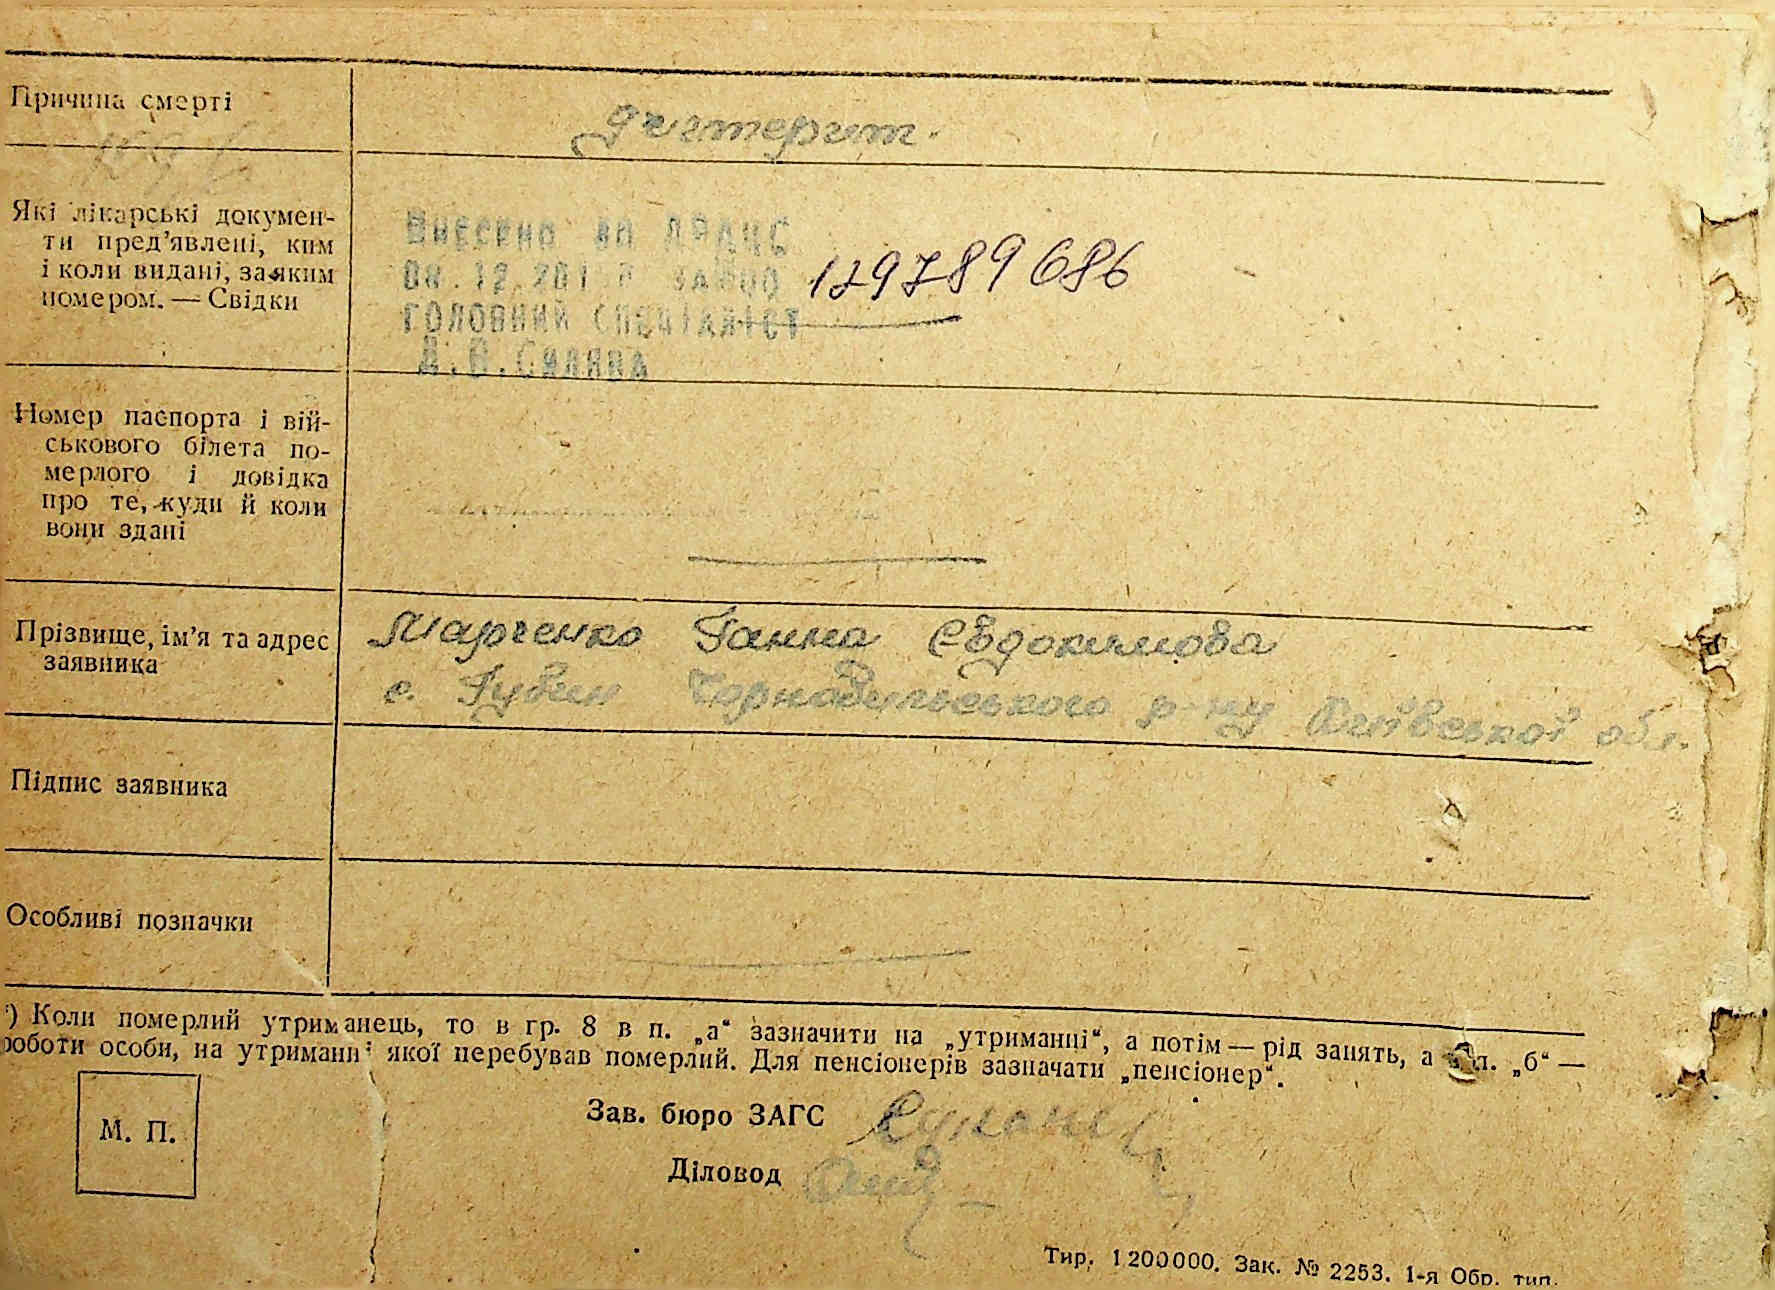 Причина смерті
дихтерит.
Які лікарські докумен-
ти пред’явлені, ким
і коли видані, за яким
номером. — Свідки
Внесено до ДРАЦС
08.12.201 за №00 179789686
головний спеціаліст
Номер паспорта і вій-
ськового білета по-
мерлого і довідка
про те, куди й коли
вони здані
Прізвище, ім’я та адрес
заявника
Марченко Ганна Євдокимова
с. Губин Чорнобильського р-ну Київської обл.
Підпис заявника
Особливі позначки
*) Коли померлий утриманець, то в гр. 8 в п. „а“ зазначити на „утриманні“, а потім — рід занять, а в п. „б“ —
роботи особи, на утриманні якої перебував померлий. Для пенсіонерів зазначати „пенсіонер“.
М. П.
Зав. бюро ЗАГС
Діловод
Тир. 1200000. Зак. № 2253. 1-я Обр. тип.